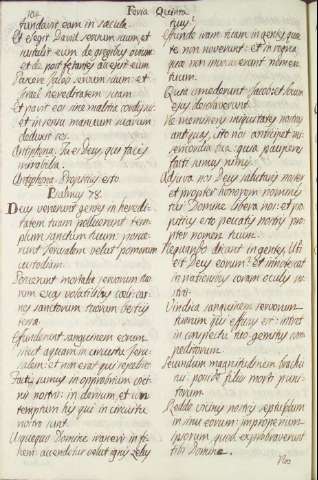 104 Feria Quinta
fundavit eam in sæcula.
Et elegit David servum suum, et
sustulit eum de gregibus ovium:
et de post fetantes accepit eum.
Pascere Jacob servum suum: et
Israel hereditatem suam.
Et pavit eos in cordis sui:
et in manuum suarum
deduxit eos.
Antiphona. Tu es Deus qui facis
mirabilia.
Antiphona. Propitius esto.
Psalmus 78.
Deus venerunt gentes in heredi-
tatem tuam polluerunt tem-
plum sanctum tuum: posue-
runt Jerusalem velut pomorum
custodiam.
Posuerunt servorum tuo-
rum escas volatilibus cœli: car-
nes sanctorum tuorum bestiis
terræ.
Effuderunt sanguinem eorum
aquam in circuitu Jeru-
salem: et non erat qui sepeliret.
Facti sumus in opprobrium vici-
nis nostris: in circuitu
nostro sunt.
Usquequo Domine irasceris in fi-
nem: accendetur velut ignis zelus
tuus?
Effunde iram tuam in gentes quæ
te non noverunt: et in regna
quæ nomen
tuum.
Quia comederunt Jacob: et locum
ejus desolaverunt.
Ne memineris iniquitatum nostra-
antiquas, cito nos anticipet mi-
sericordia tua: quia pauperes
facti sumus nimis.
Adjuva nos Deus salutaris noster:
et propter honorem nominis
tui Domine libera nos: et pro-
pitius esto peccatis nostris pro-
pter nomen tuum.
dicant in gentes, Ubi
est Deus eorum? Et innotescat
in nationibus coram oculis no-
stris.
sanguinem servorum
tuorum qui effusus est: introeat
in conspectu tuo gemitus com-
peditorum.
Secundum magnitudinem brachii
tui: filios morti-
ficatorum.
Redde vicinis nostris septuplum
in sinu eorum: improperium
ipsorum quod exprobraverunt
tibi Domine.
Nos